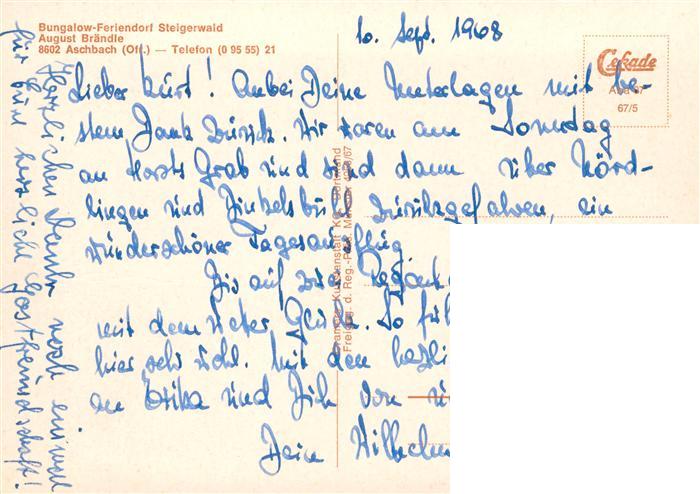 Bungalow-Feriendorf Steigerwald
August Brändle
8602 Aschbach (Ofr.) — Telefon (0 95 55) 21
10. Sept. 1968
Cekade
67/5
Lieber Kurt! Anbei Deine Unterlagen mit be-
stem Dank zurück. Wir waren am Sonntag
an Horsts Grab und sind dann über Nörd-
lingen und Dinkelsbühl zurückgefahren, ein
wunderschöner Tagesausflug
Bis auf zwei
mit dem Wetter Glück. So
hier sehr wohl. Mit den
an Erika und Dich von
Dein Wilhelm
Herzlichen Dank noch einmal
für Eure herzliche Gastfreundschaft!
Krammer Kunstanstalt
Freigeg. d. Reg.-Präs.